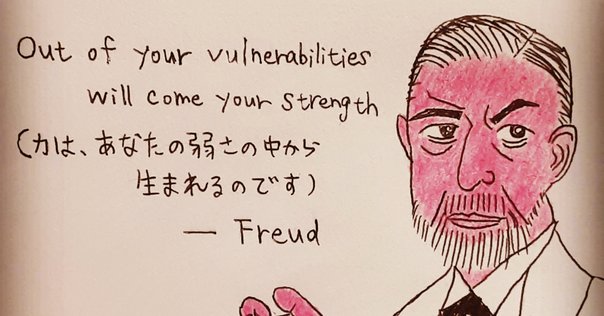 Out of your vulnerabilities
will come your strength
(力は、あなたの弱さの中から
生まれるのです)
— Freud